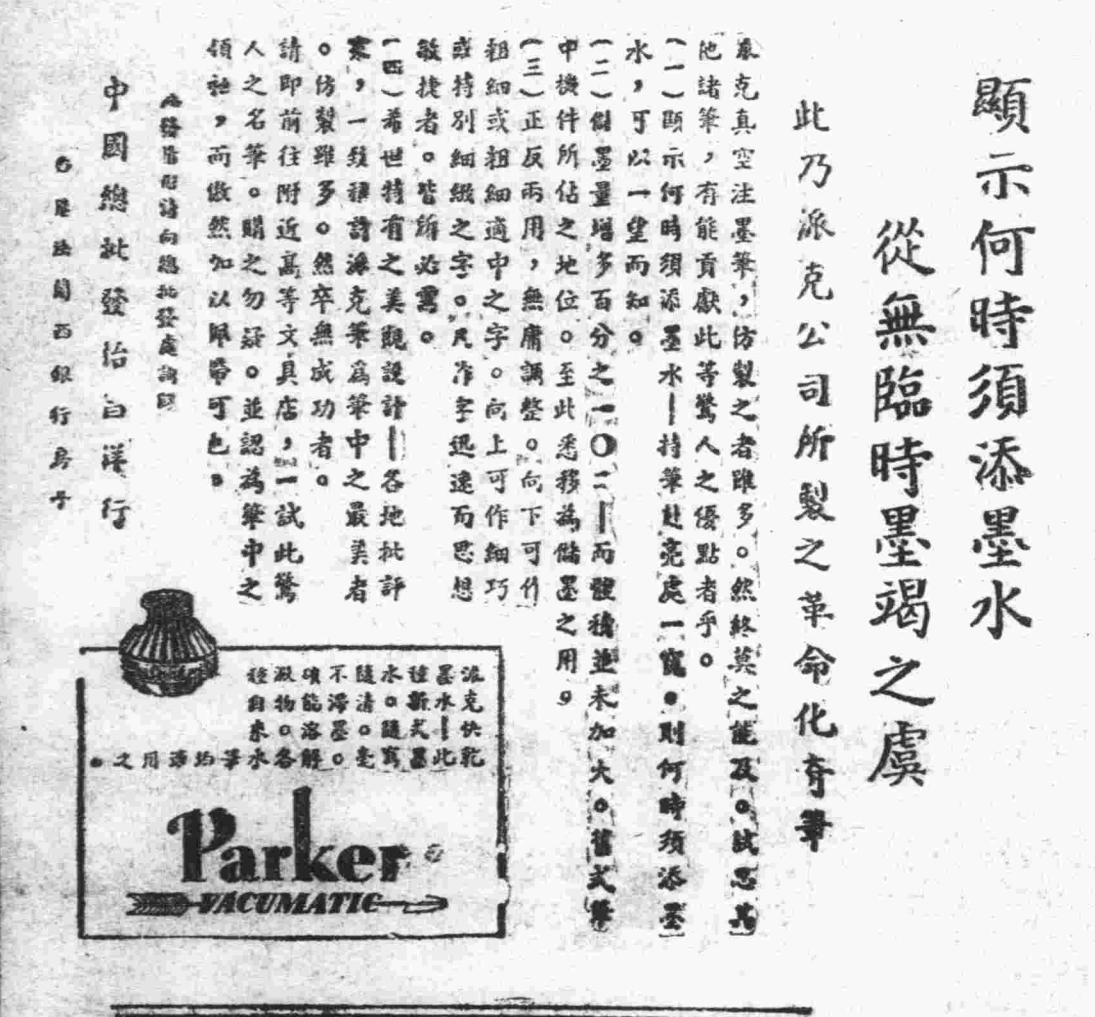 顯示何時須添墨水
從無臨時墨竭之虞
此乃派克公司所製之革命化奇筆
派克真空注墨筆，仿製之者雖多。然終莫之能及。試思其
他諸筆，有能貢獻此等驚人之優點者乎。
(一)顯示何時須添墨水—持筆赴亮處一窺。則何時須添墨
水，可以一望而知。
(二)儲墨量增多百分之一〇二—而體積並未加大。舊式筆
中機件所佔之地位。至此悉移為儲墨之用。
(三)正反兩用，無庸調整。向下可作
粗細或粗細適中之字。向上可作細巧
或特別細緻之字。凡作字迅速而思想
敏捷者。皆所必需。
(四)希世特有之美觀設計—各地批評
家，一致稱許派克筆爲筆中之最美者
。仿製雖多。然卒無成功者。
請即前往附近高等文具店，一試此驚
人之名筆。購之勿疑。並認為筆中之
領袖，而傲然加以佩帶可也。
批發請向總批發處詢問
中國總批發怡白洋行
法蘭西銀行房子
派克快乾
墨水—此
種新式墨
水。隨寫
隨清。毫
不滯墨。
積能溶解
澱物。各
種自來水
筆均適用之。
Parker
VACUMATIC